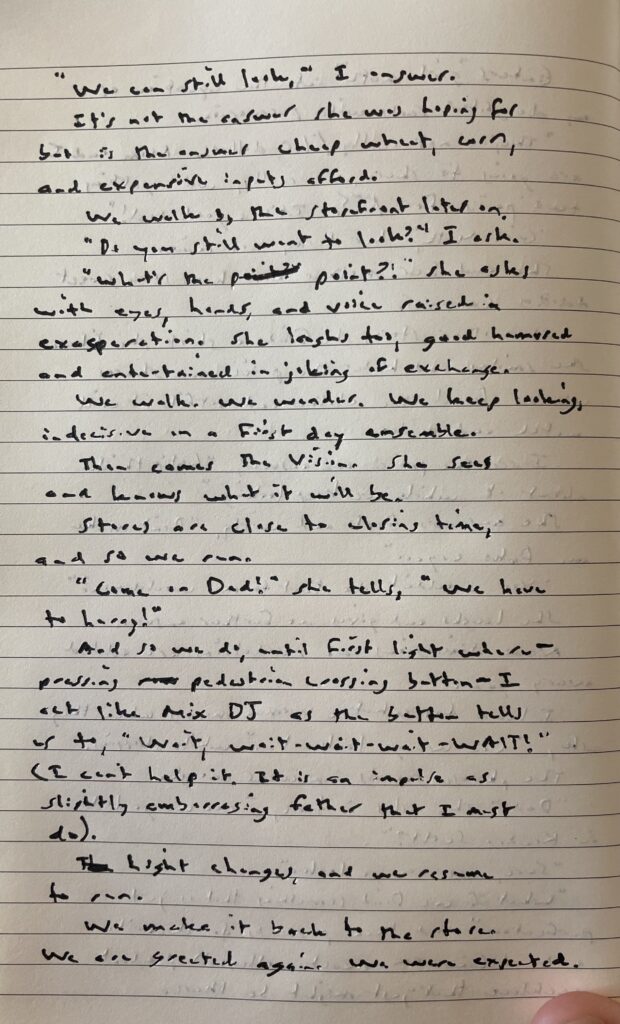 "We can still look," I answer.
It's not the answer she was hoping for
but is the answer cheap wheat, corn,
and expensive inputs afford.
We walk by the storefront later on.
"Do you still want to look?" I ask.
"What's the point?!" she asks
with eyes, hands, and voice raised in
exasperation. She laughs too, good humored
and entertained in joking of exchange.
We walk. We wander. We keep looking,
indecisive on a first day ensemble.
Then comes the Vision. She sees
and knows what it will be.
Stores are close to closing time,
and so we run.
"Come on Dad!" she tells, "We have
to hurry!"
And so we do, until first light where—
pressing pedestrian crossing button—I
act like Mix DJ as the button tells
us to, "Wait, wait-wait-wait-WAIT!"
(I can't help it. It is an impulse as
slightly embarrasing father that I must
do).
Light changes, and we resume
to run.
We make it back to the store.
We are greeted again. We were expected.